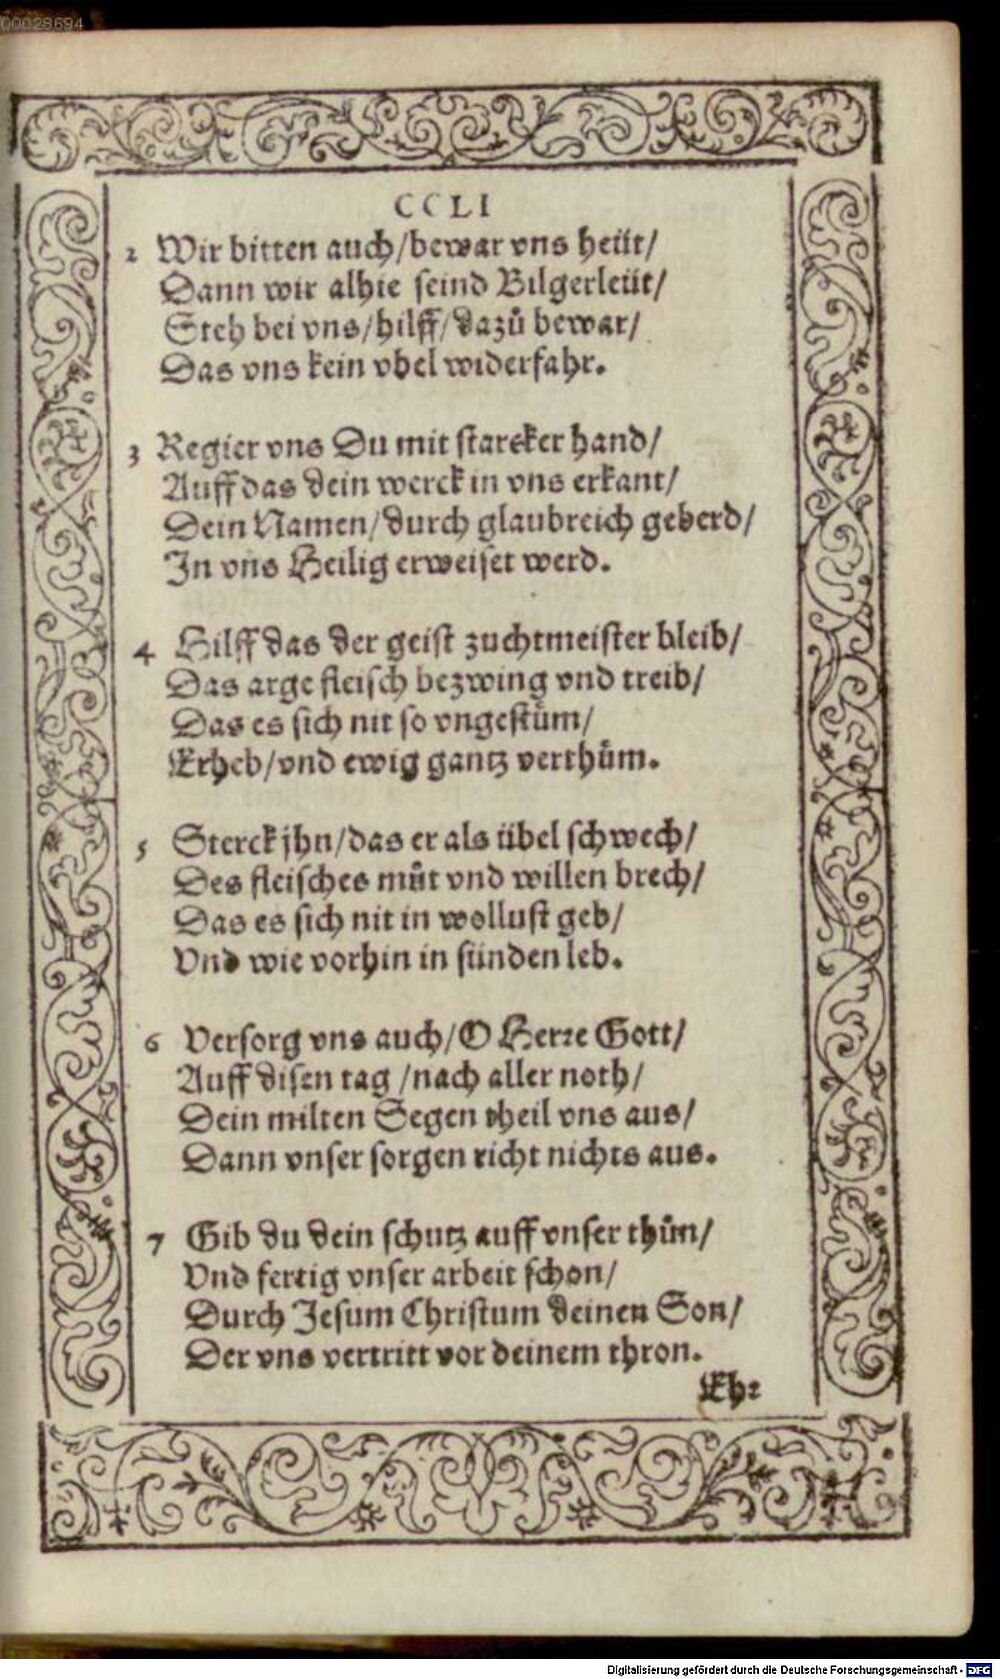 00028694
CCLI
2 Wir bitten auch/bewar vns heüt/
Dann wir alhie seind Bilgerleüt/
Steh bei vns/hilff/dazů bewar/
Das vns kein vbel widerfahr.
3 Regier vns Du mit starcker hand/
Auff das dein werck in vns erkant/
Dein Namen/durch glaubreich geberd/
In vns Heilig erweiset werd.
4 Hilff das der geist zuchtmeister bleib/
Das arge fleisch bezwing vnd treib/
Das es sich nit so vngestüm/
Erheb/vnd ewig gantz verthüm.
5 Sterck jhn/das er als übel schwech/
Des fleisches můt vnd willen brech/
Das es sich nit in wollust geb/
Vnd wie vorhin in sünden leb.
6 Versorg vns auch/O Herre Gott/
Auff disen tag/nach aller noth/
Dein milten Segen theil vns aus/
Dann vnser sorgen richt nichts aus.
7 Gib du dein schutz auff vnser thůn/
Vnd fertig vnser arbeit schon/
Durch Jesum Christum deinen Son/
Der vns vertritt vor deinem thron.
Ehr
Digitalisierung gefördert durch die Deutsche Forschungsgemeinschaft - DFG